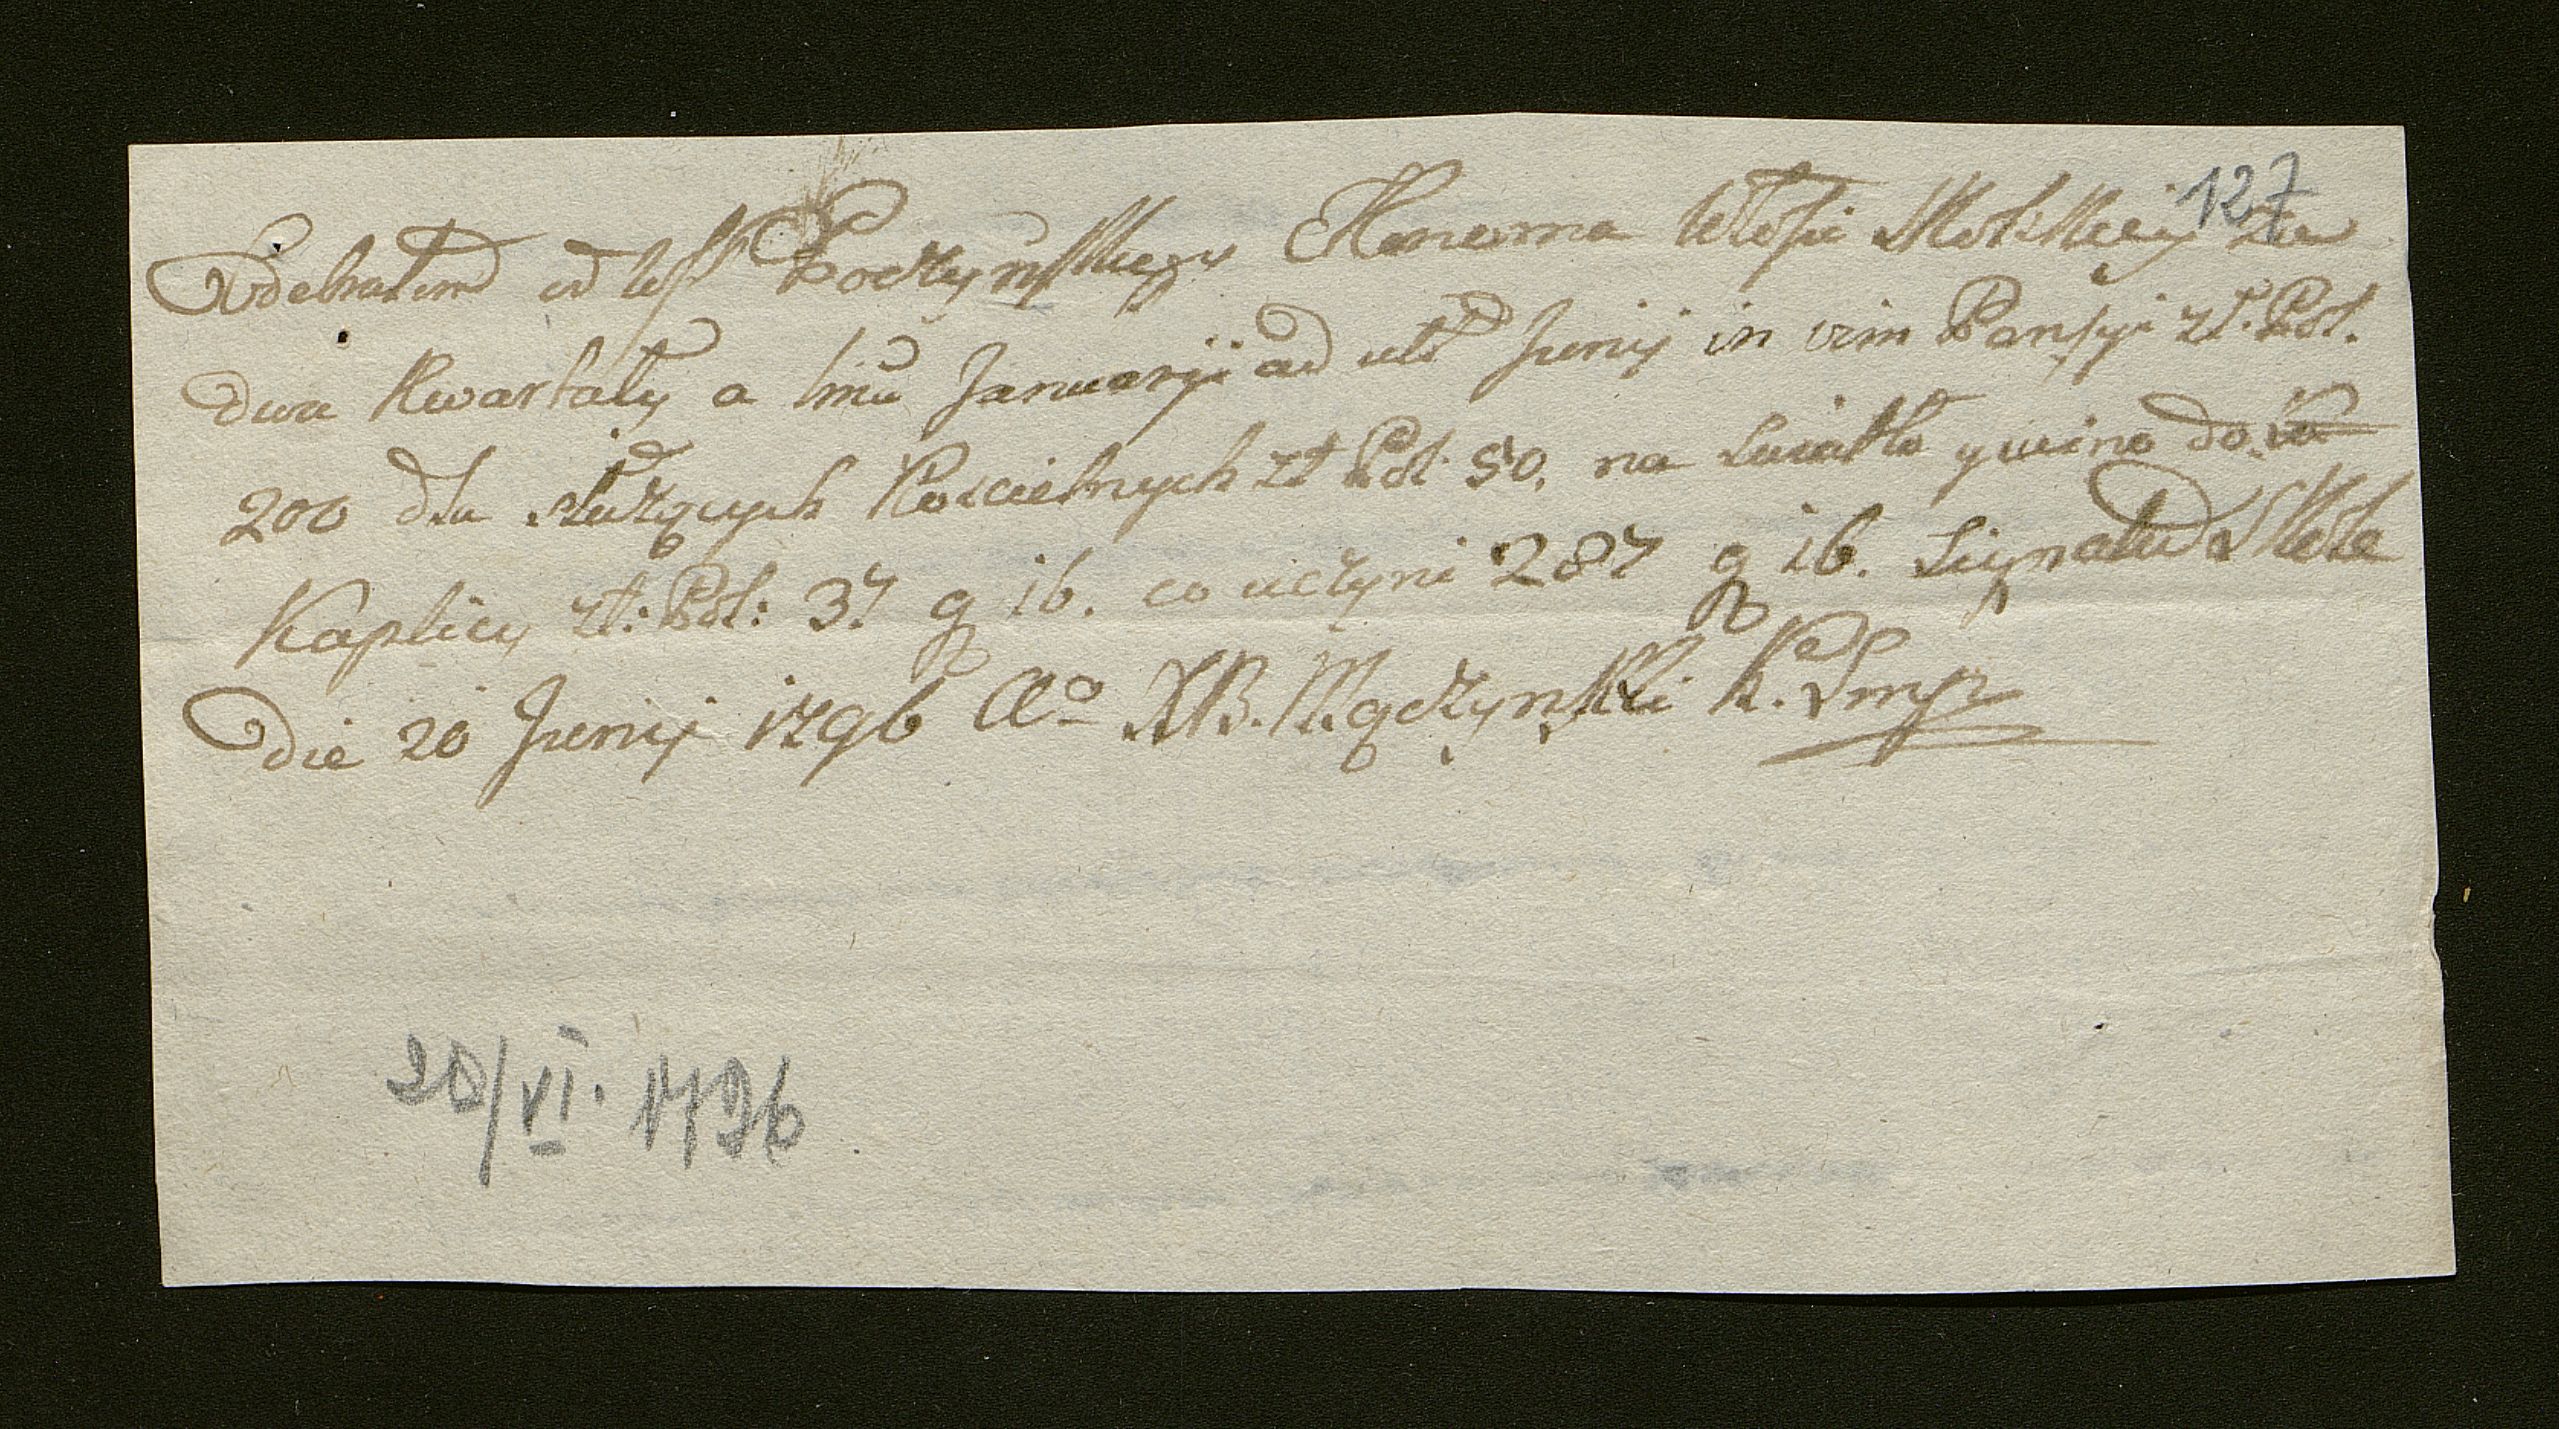 127
Odebrałem od WJP Poczyńskiego Ekonoma Włosci Skolskiey za
dwa Kwartały a 1mu Januarij ad ult Junij in vim Pensyi zł. Pol.
200 dla służących Koscielnych zł Pol 50, na Swiatło y wino do
Kaplicy zł: Pol: 37 g 16. co uczyni 287 g 16. Signatu Skole
Die 20 Junij 1796 Ao XB. Mączynski K. Smp
20/VI. 1796